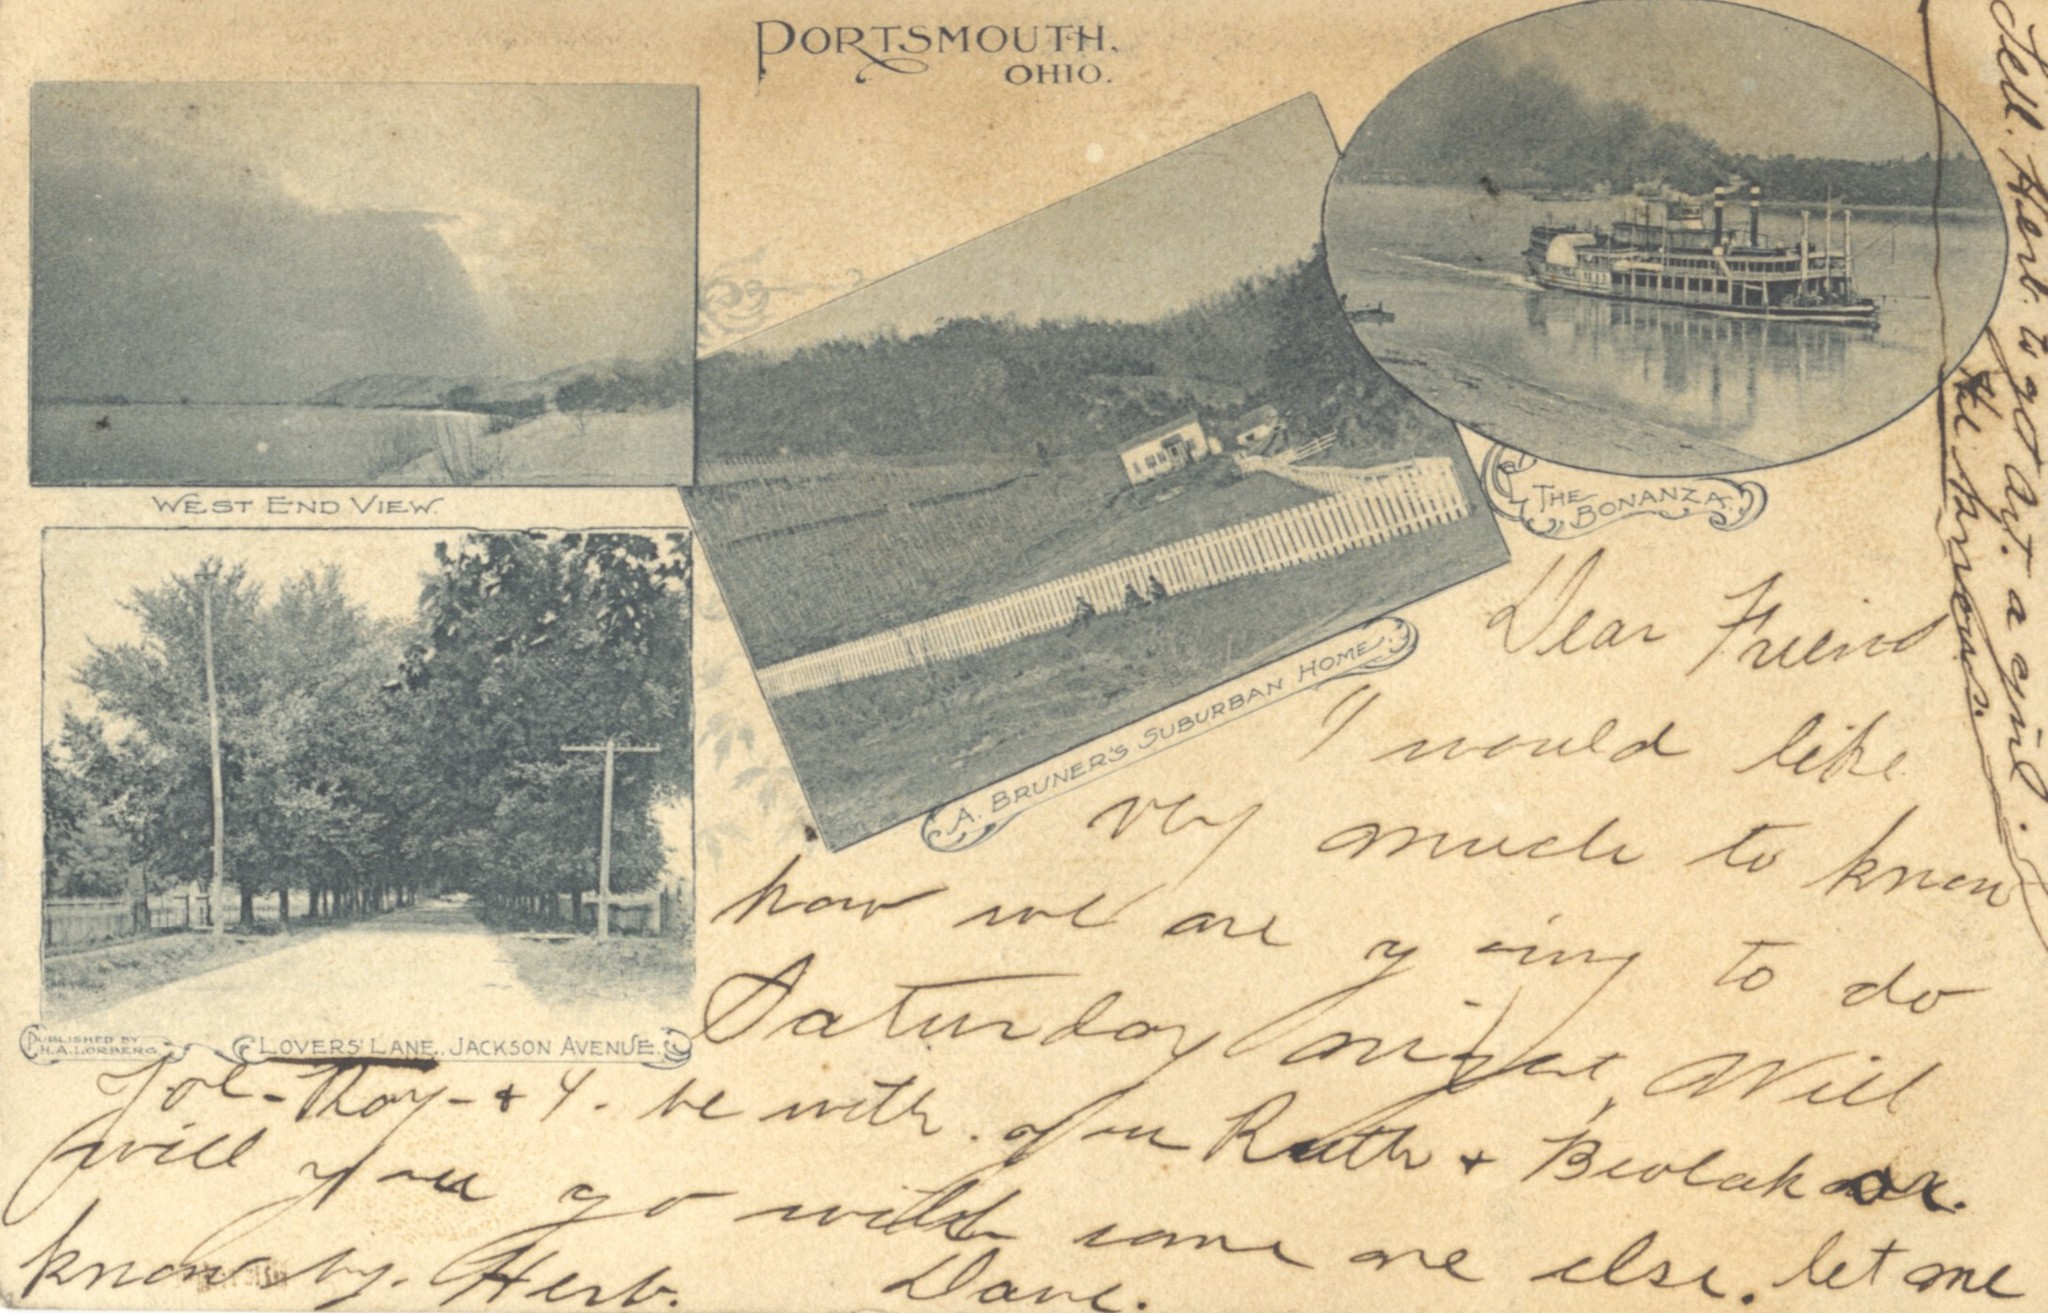 PORTSMOUTH,
OHIO.
WEST END VIEW.
THE
BONANZA.
A. BRUNER'S SUBURBAN HOME
PUBLISHED BY
H.A. LORBERG.
LOVERS' LANE, JACKSON AVENUE.
Dear Friend
I would like
very much to know
how we are going to do
Saturday night, Will
Joe - Roy - & I - be with you Ruth & Beulah or
will you go with some one else. let me
know by. Herb. Dave.
Tell. Herb. to get Art. a girl.